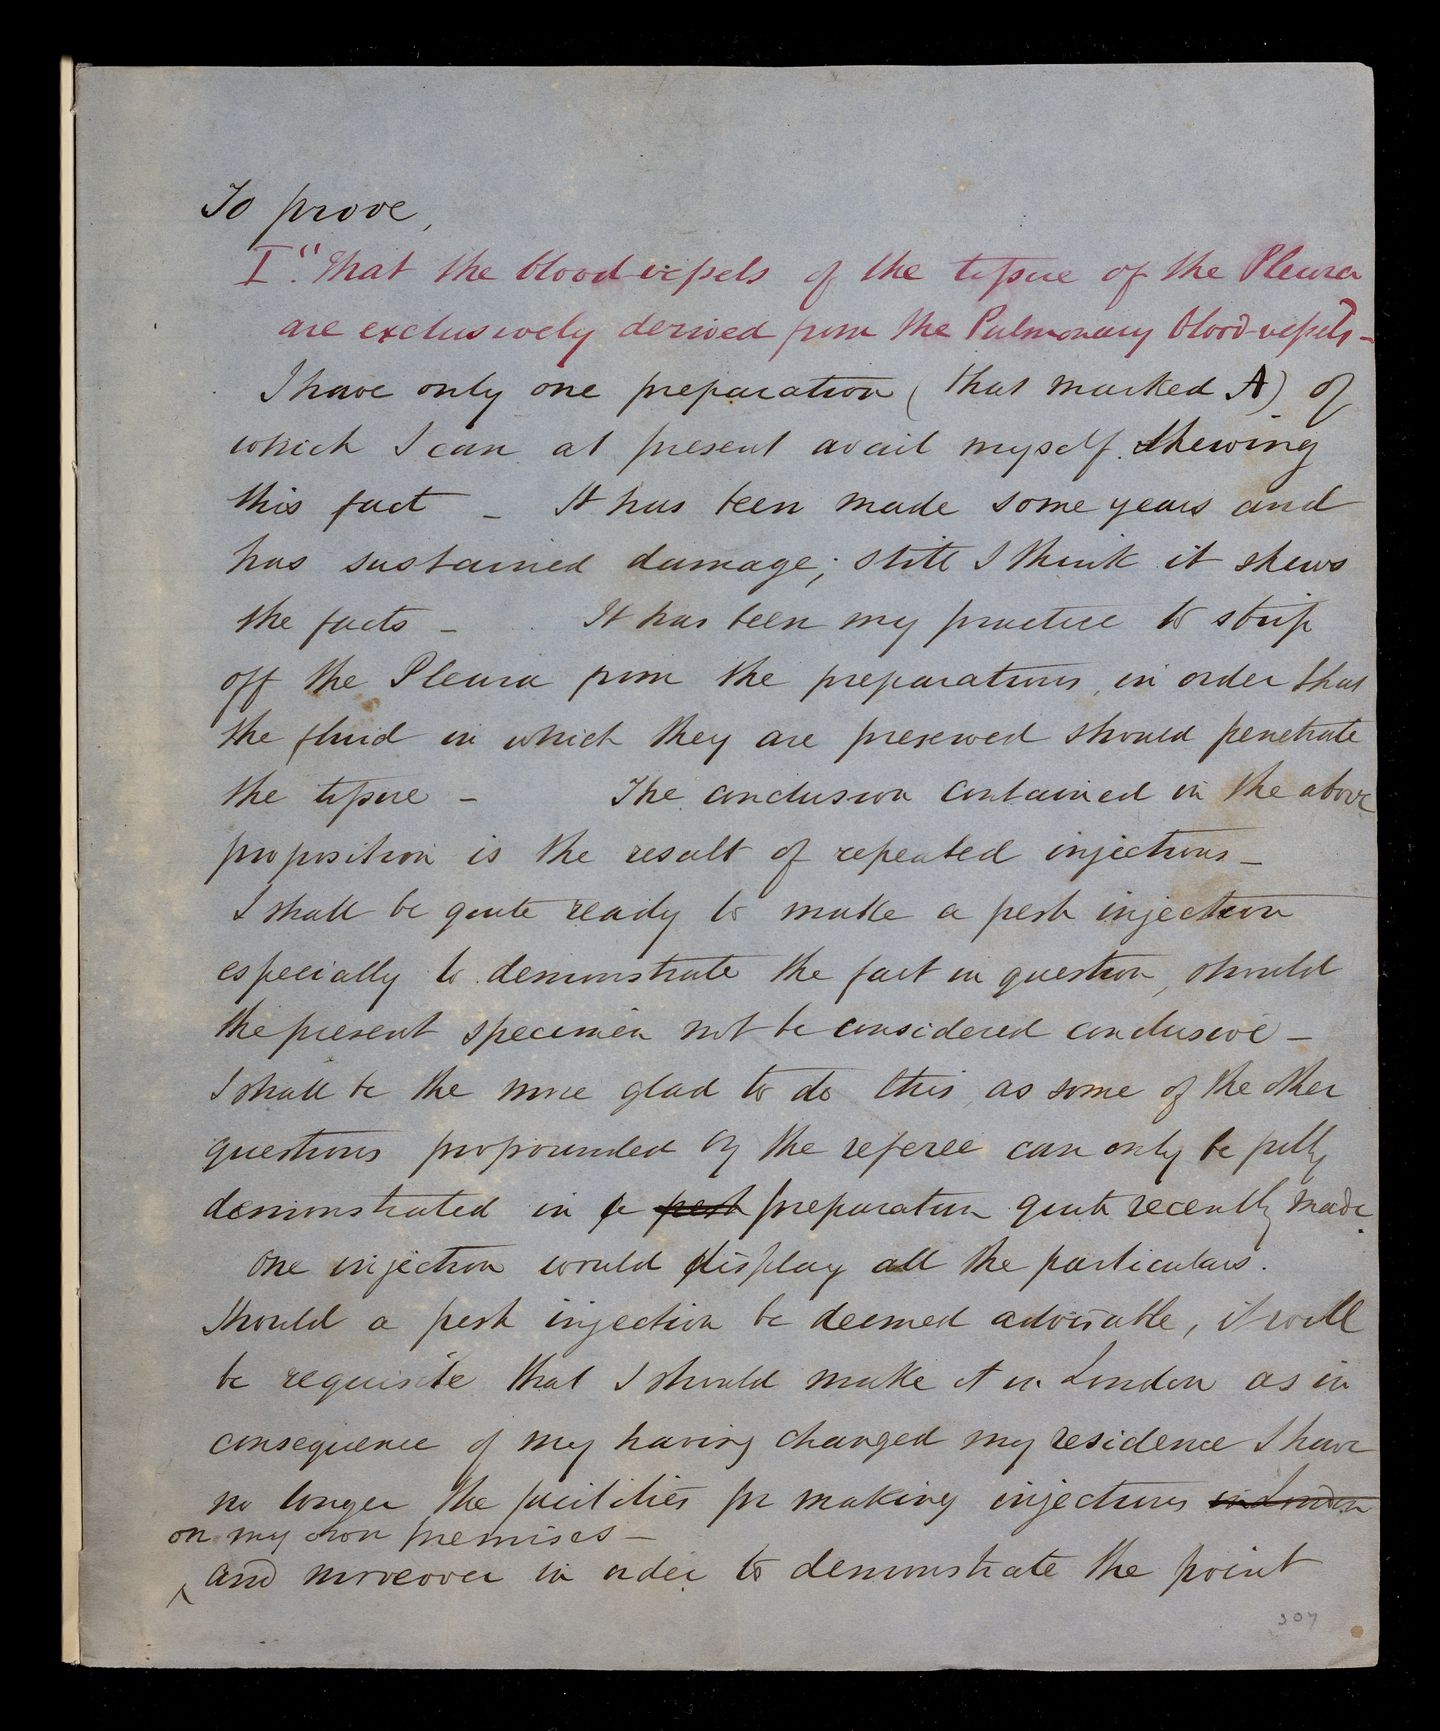 To prove,
I. "That the blood-vessels of the tissue of the Pleura
are exclusively derived from the Pulmonary blood-vessels" –
I have only one preparation (that marked A) of
which I can at present avail myself shewing
this fact – It has been made some years and
has sustained damage; still I think it shews
the facts – It has been my practice to strip
off the Pleura from the preparations, in order that
the fluid in which they are preserved should penetrate
the tissue – The conclusion contained in the above
proposition is the result of repeated injections –
I shall be quite ready to make a fresh injection
especially to demonstrate the fact in question, should
the present specimen not be considered conclusive –
I shall be the more glad to do this, as some of the other
questions propounded by the referee can only be fully
demonstrated in a fresh preparation quite recently made.
One injection would display all the particulars.
Should a fresh injection be deemed advisable, it will
be requisite that I should make it in London as in
consequence of my having changed my residence I have
no longer the facilities for making injections in London
on my own premises –
and moreover in order to demonstrate the point
307